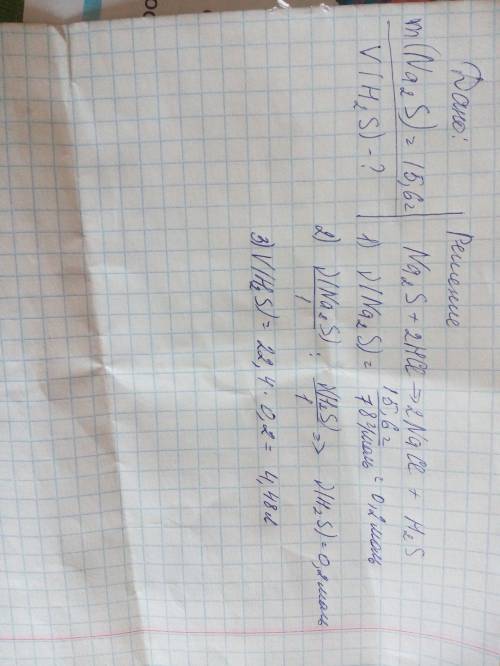 Дано:
m(Na₂S) = 15,6г
V(H₂S) - ?
Решение
Na₂S + 2HCl → 2NaCl + H₂S
1) ν(Na₂S) = 15,6г / 78г/моль = 0,2 моль
2) ν(Na₂S) / 1 : ν(H₂S) / 1 => ν(H₂S) = 0,2 моль
3) V(H₂S) = 22,4 · 0,2 = 4,48л